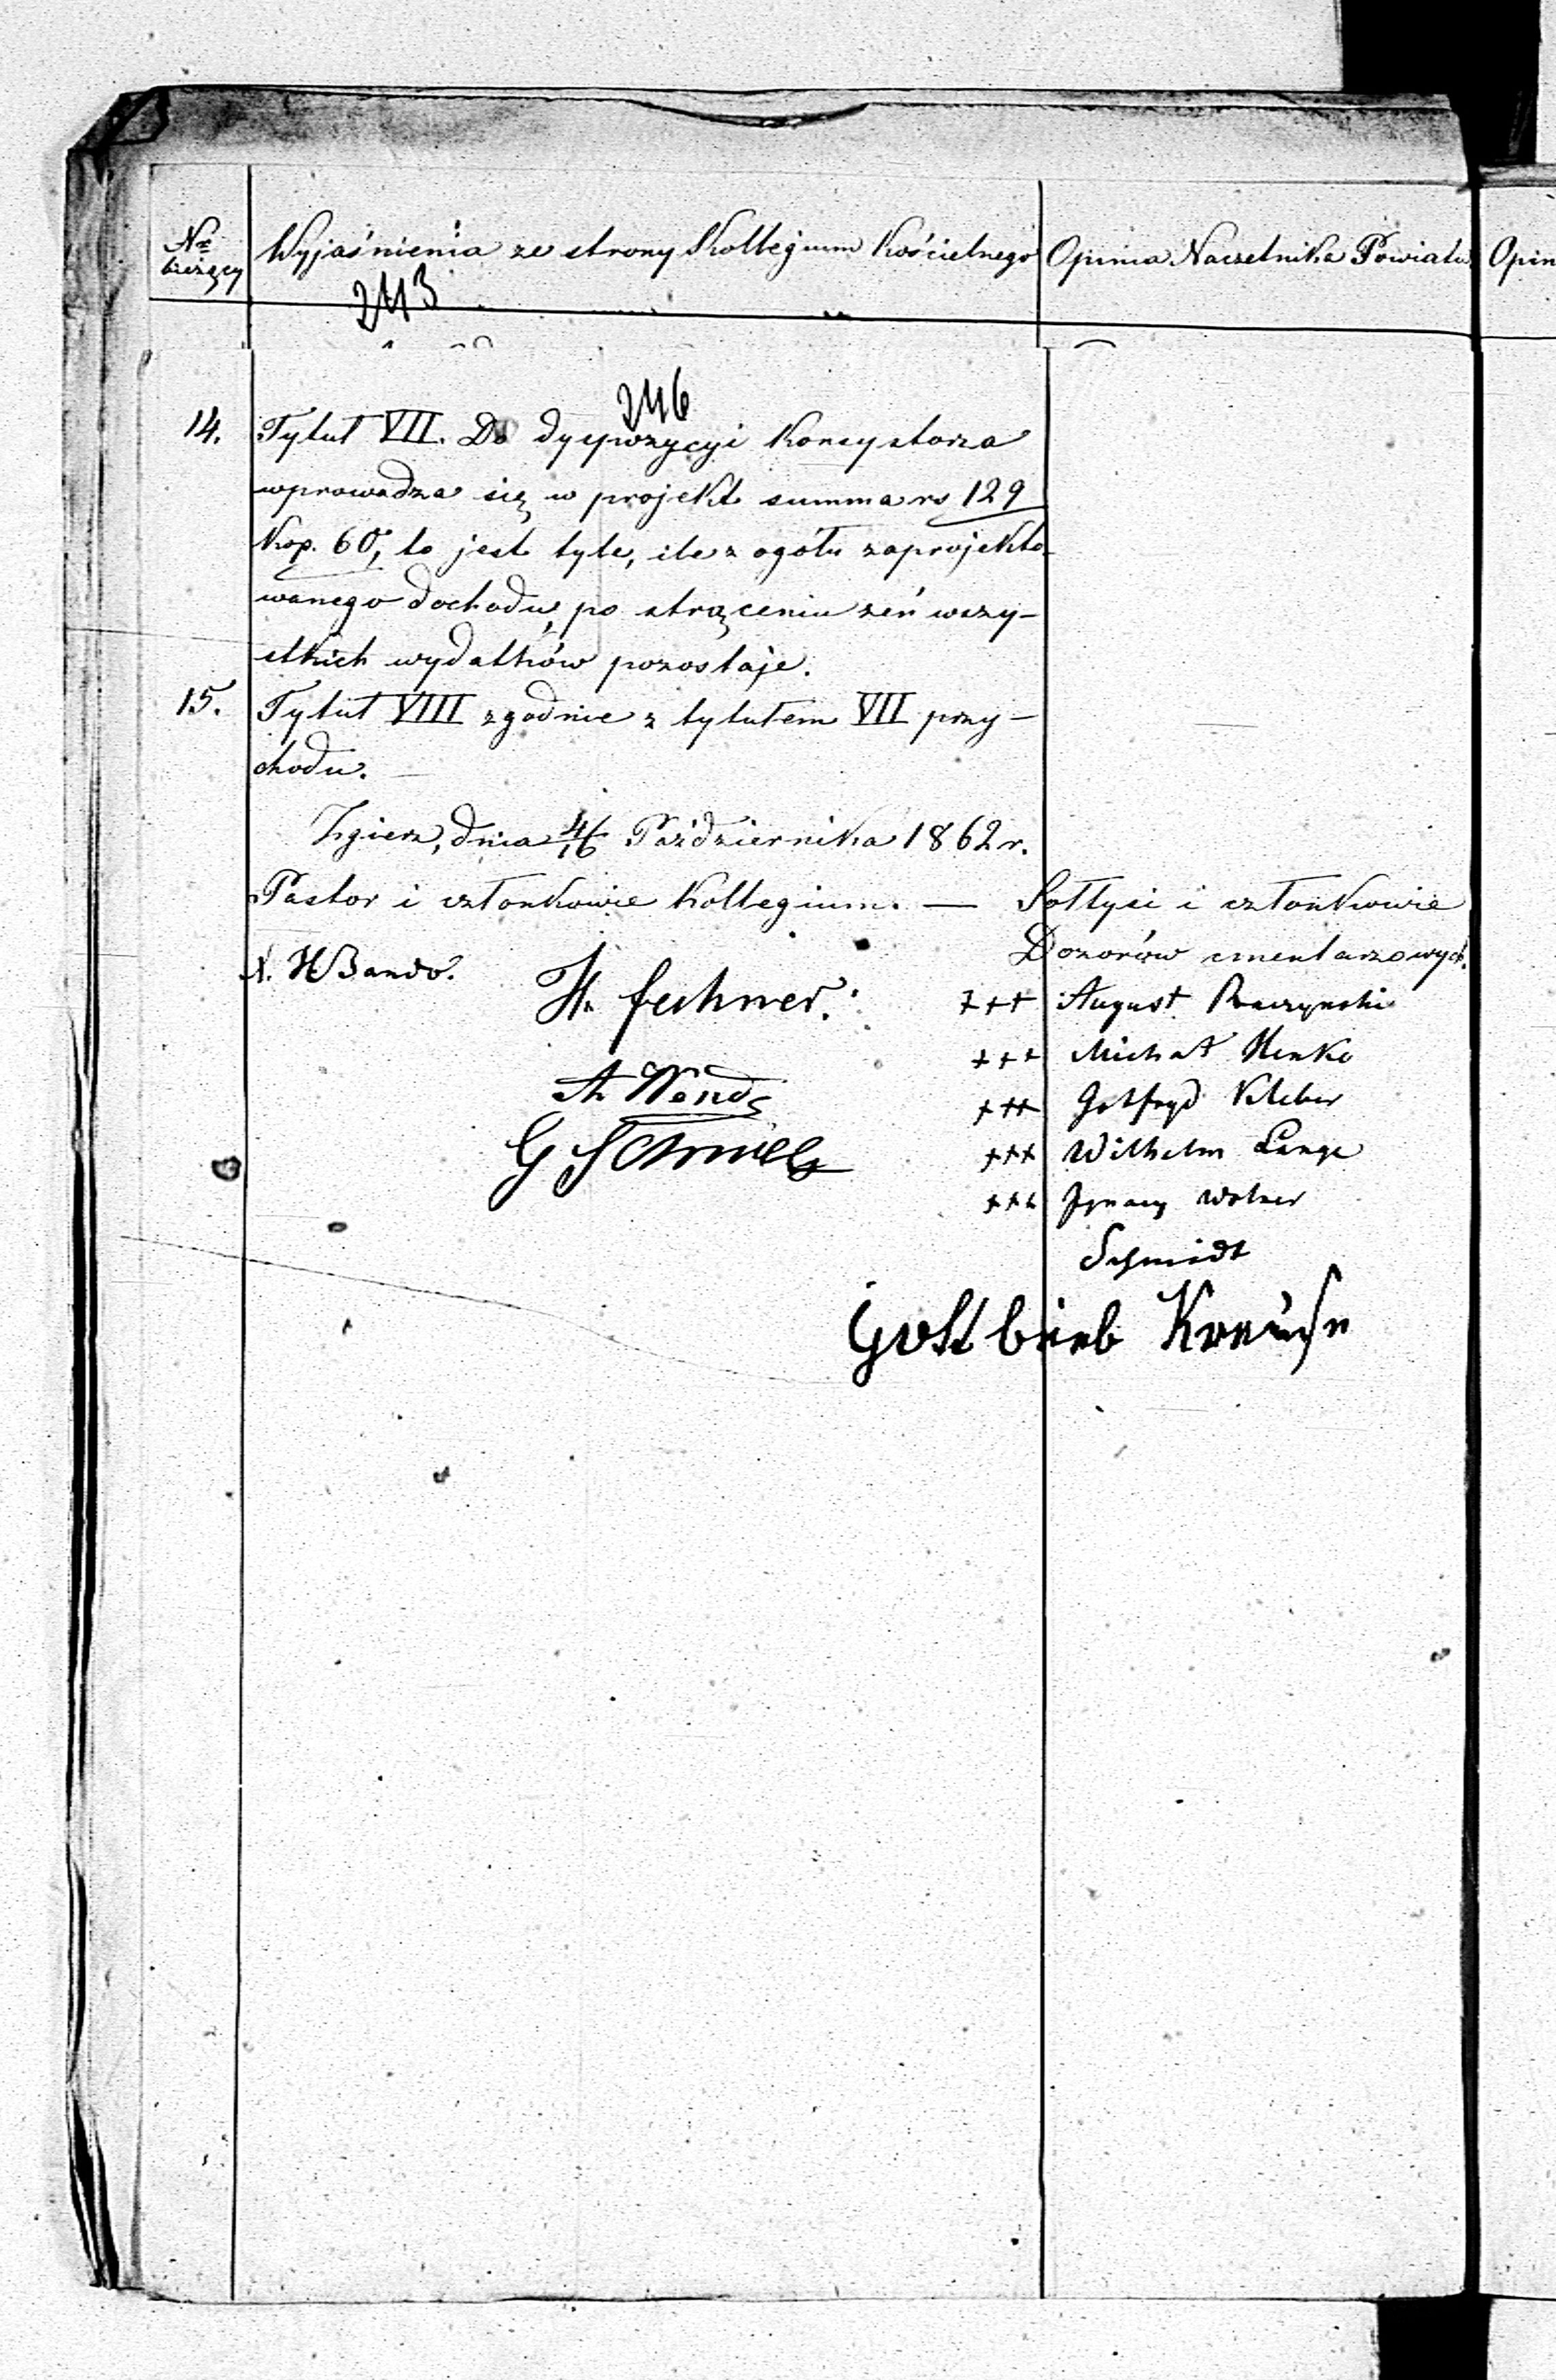 Nr bieżący
Wyjaśnienia ze strony Kollegium Kościelnego
Opinia Naczelnika Powiatu
Opin
243
246
14. Tytuł VII. Do dyspozycyi Konsystorza
wprowadza się w projekt summa rs 129
Kop. 60, to jest tyle, ile z ogółu zaprojekto-
wanego dochodu, po strąceniu zeń wszy-
stkich wydatków pozostaje.
15. Tytuł VIII zgodnie z tytułem VII przy-
chodu.
Zgierz, dnia 4/16 Października 1862 r.
Pastor i członkowie Kollegium. — Sołtysi i członkowie
Dozorów cmentarzowych.
H. Fechner.
A Wendt
+++ August
+++ Michał Henke
+++ Gotfryd
+++ Wilhelm Lange
+++ Ignacy Wolner
Schmidt
Gottlieb Krause